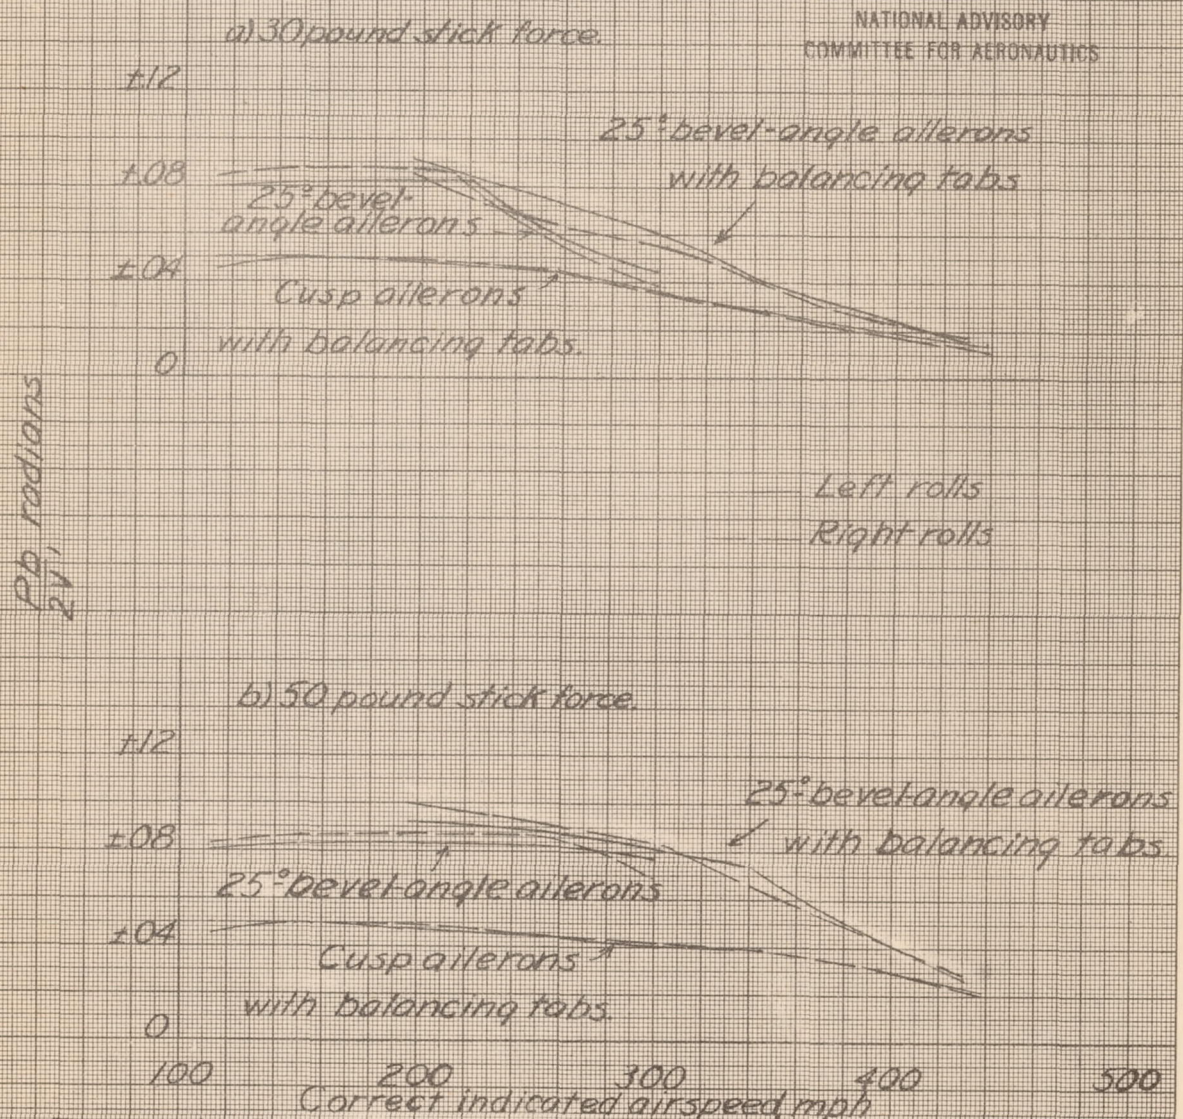 a) 30 pound stick force.
NATIONAL ADVISORY
COMMITTEE FOR AERONAUTICS
±.12
25° bevel-angle ailerons
with balancing tabs
±.08
25° bevel-
angle ailerons
±.04
Cusp ailerons
with balancing tabs.
0
Pb, radians
2V
Left rolls
Right rolls
b) 50 pound stick force.
±.12
25° bevel-angle ailerons
with balancing tabs.
±.08
25° bevel-angle ailerons
±.04
Cusp ailerons
with balancing tabs.
0
100 200 300 400 500
Correct indicated airspeed mph